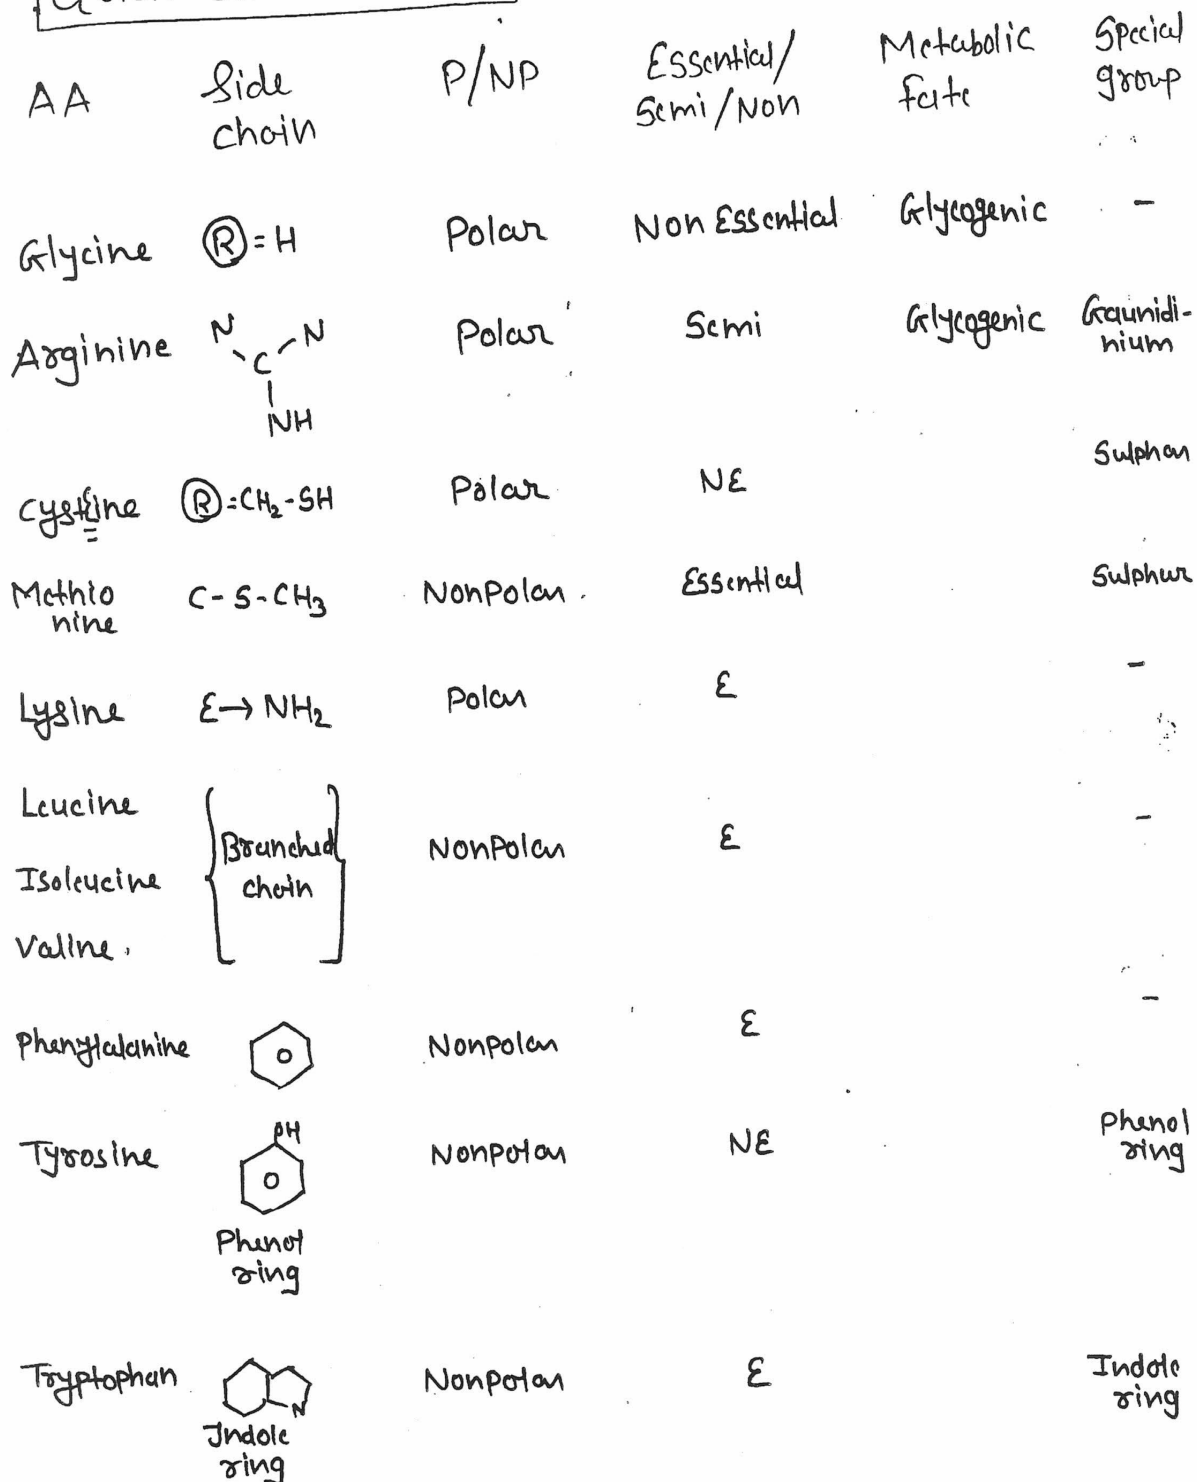 AA Side chain P/NP Essential/ Semi/Non Metabolic fate Special group
Glycine R = H Polar Non Essential Glycogenic -
Arginine N C N NH Polar Semi Glycogenic Gaunidi- nium
Cysteine R = CH₂-SH Polar NE Sulphur
Methio nine C-S-CH₃ NonPolar Essential Sulphur
Lysine ε→ NH₂ Polar E -
Leucine
Isoleucine Branched chain NonPolar E -
Valine
Phenylalanine Nonpolar E -
Tyrosine OH Phenol ring Nonpolar NE Phenol ring
Tryptophan N Indole ring Nonpolar E Indole ring